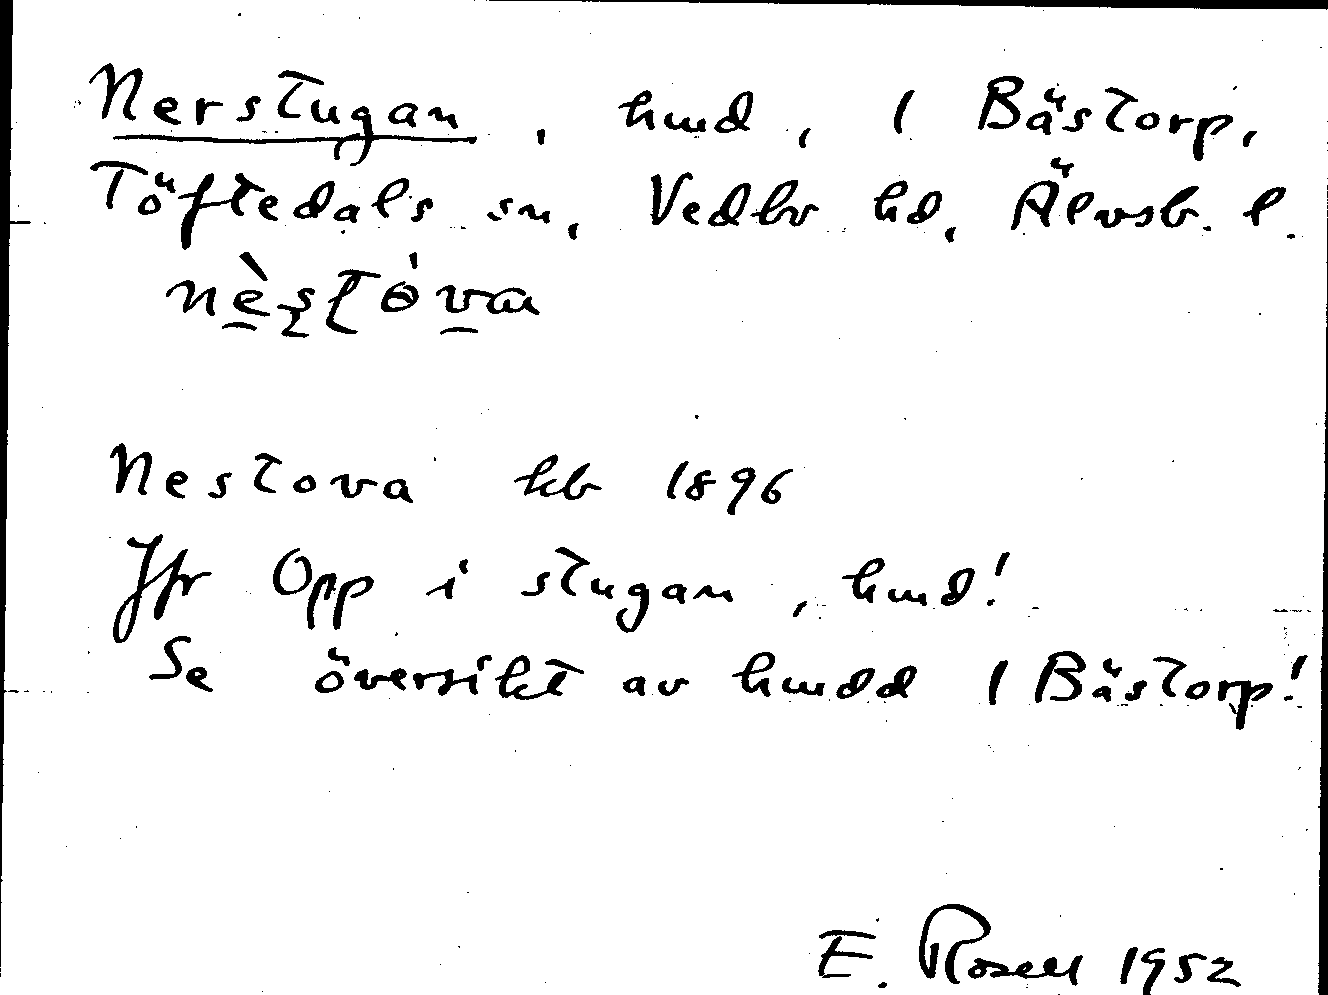 Nerstugan, hmd, 1 Bästorp,
Töftedals sn, Vedbo hd, Älvsb. l.
nèstòva
Nestova kb 1896
Jfr Opp i stugan, hmd!
Se översikt av hmdd 1 Bästorp!
E. Rosell 1952